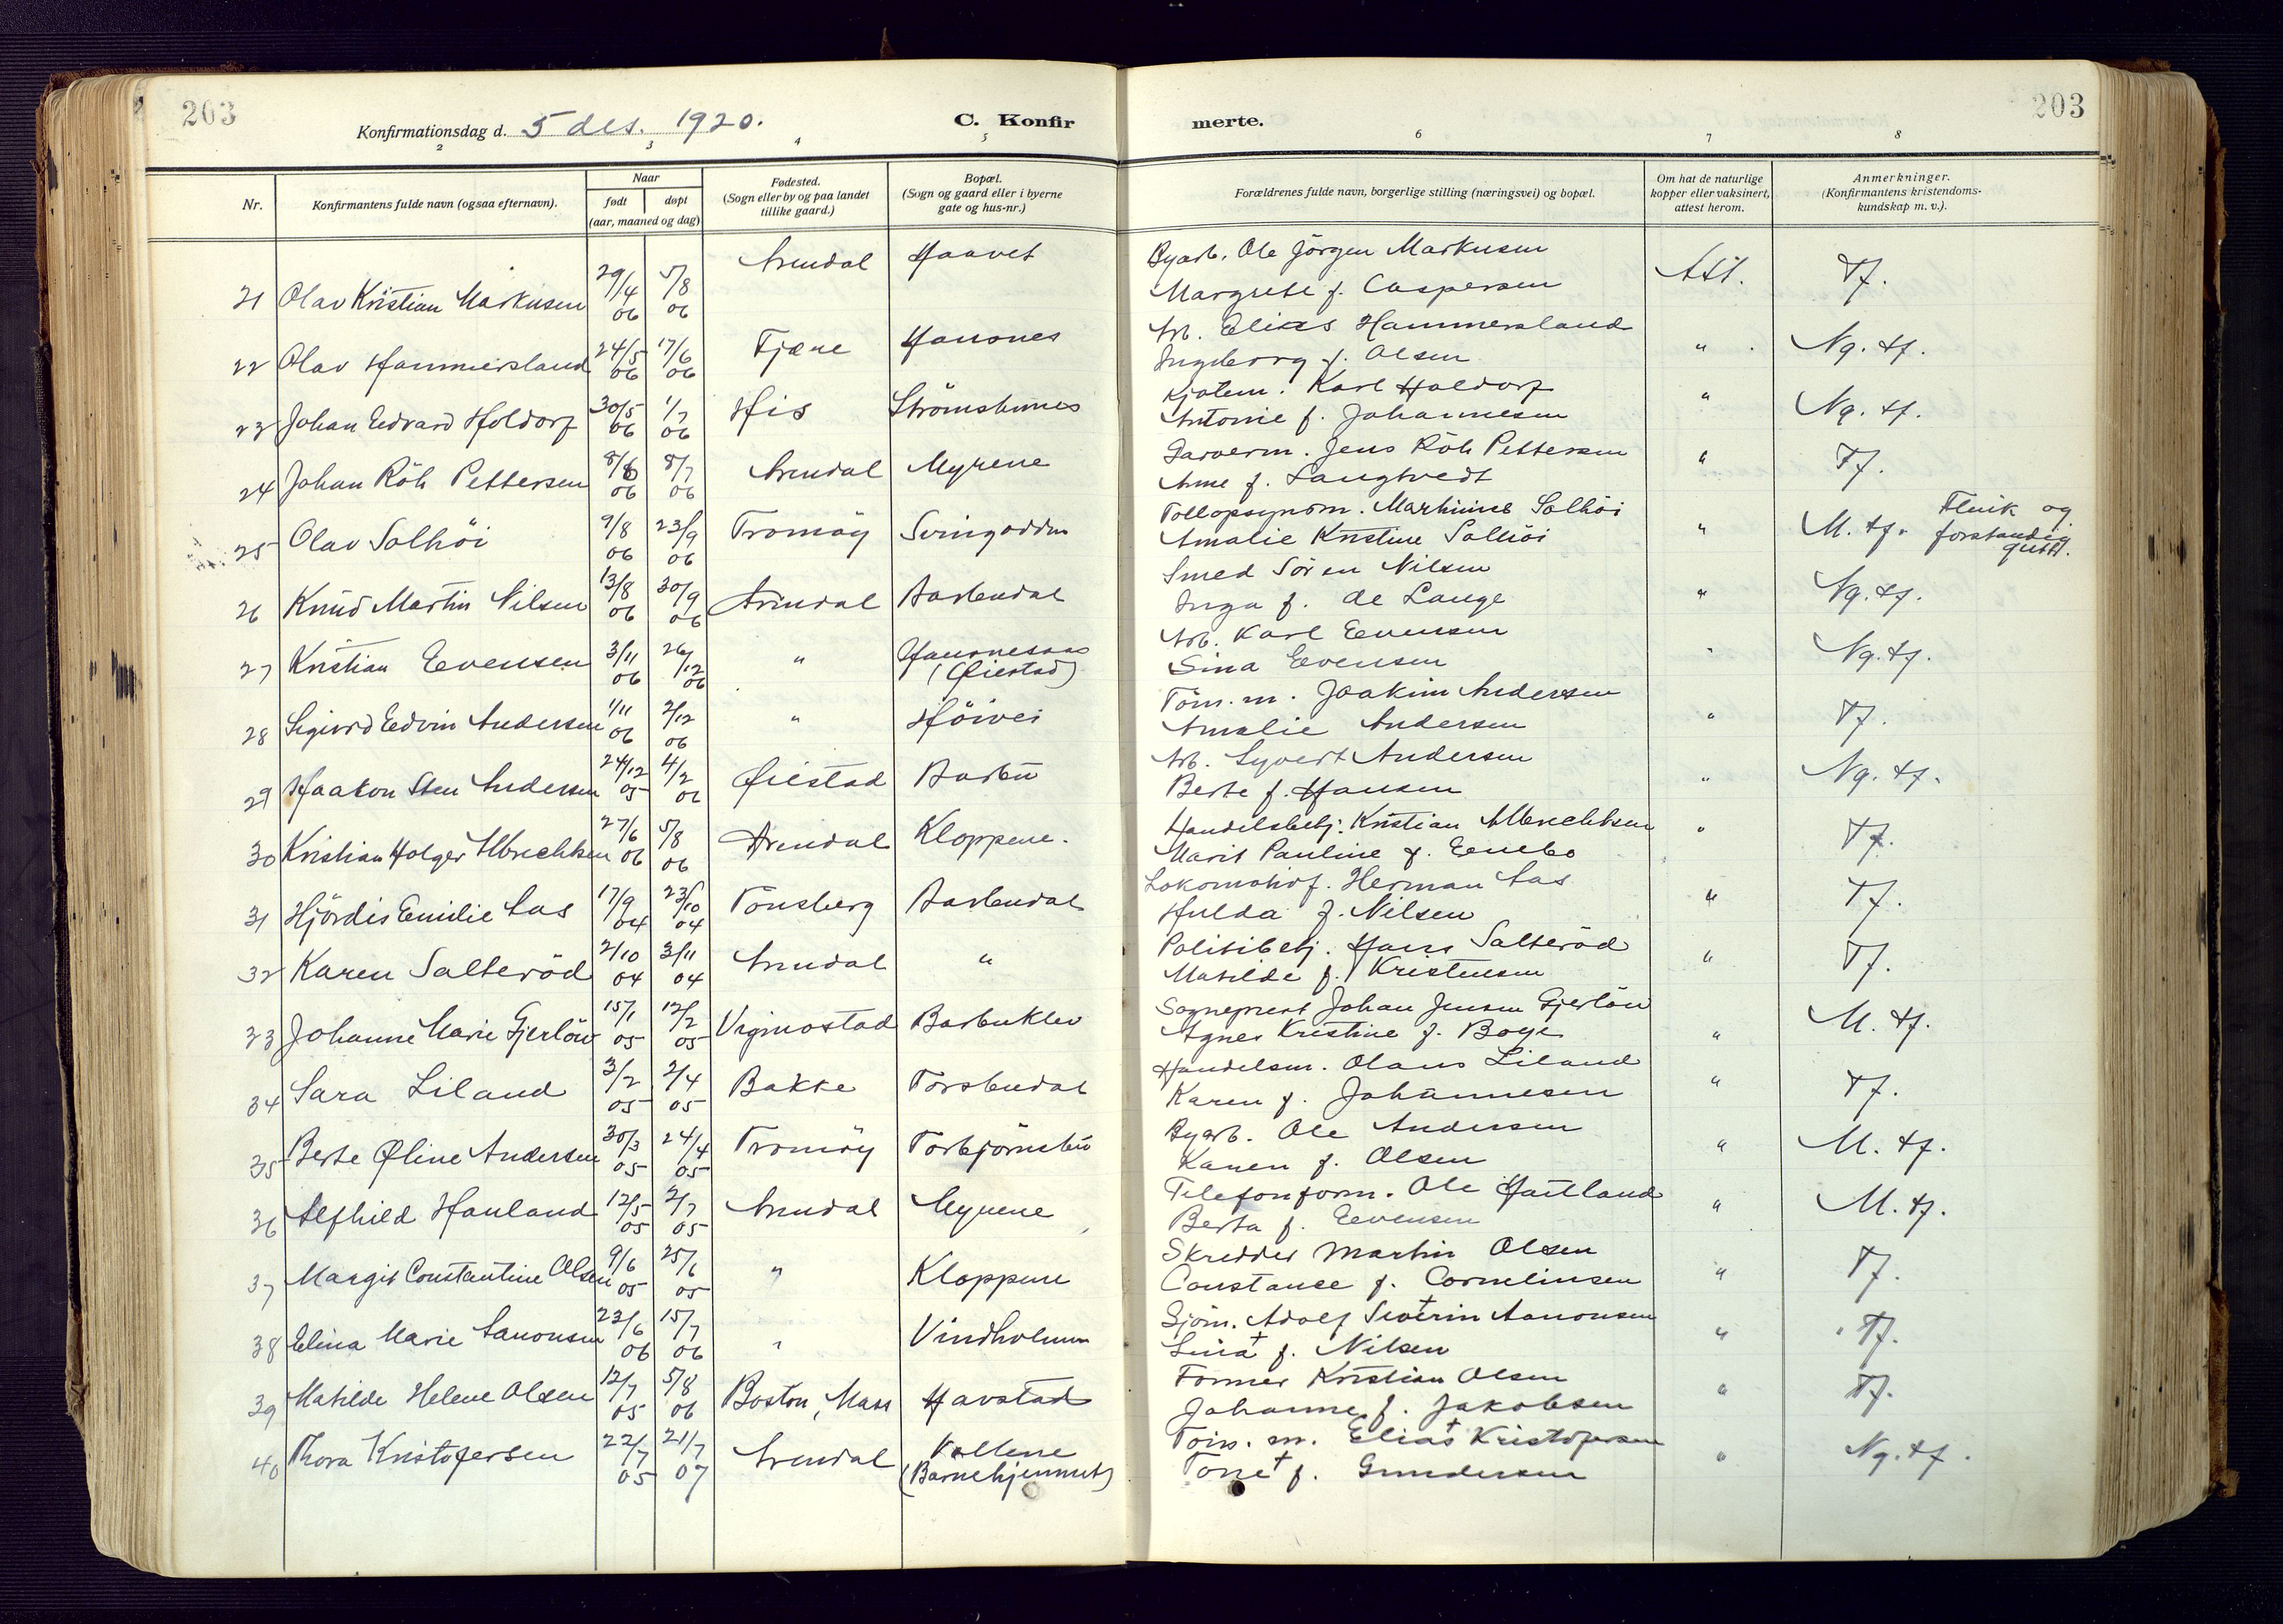 203
203
Konfirmationsdag d. 5 des. 1920.
C. Konfir
merte.
2 3 4 5 6 7 8
Nr.
Konfirmantens fulde navn (ogsaa efternavn).
Naar
født døpt
(aar, maaned og dag)
Fødested.
(Sogn eller by og paa landet
tillike gaard.)
Bopæl.
(Sogn og gaard eller i byerne
gate og hus-nr.)
Forældrenes fulde navn, borgerlige stilling (næringsvei) og bopæl.
Om hat de naturlige
kopper eller vaksinert,
attest herom.
Anmerkninger.
(Konfirmantens kristendoms-
kundskap m. v.).
21 Olav Kristian Markusen 29/4 06 5/8 06 Arendal Haavet Byarb. Ole Jörgen Markusen
Margrete f. Caspersen Att. Tf.
22 Olav Hammersland 24/5 06 17/6 06 Fjære Arb. Elias Hammersland
Ingeborg f. Olsen " Ng. tf.
23 Johan Edvard Holdorf 30/5 06 1/7 06 His Strömsbunes Karl Holdorf
Antonie f. Johannesen " Ng. tf.
24 Johan Röh Pettersen 06 8/7 06 Arendal Myrene Garverm. Jens Röh Pettersen
Anne f. Langtvedt " Tf.
25 Olav Solhöi 9/8 06 23/9 06 Tromöy Svingodden Tollopsynsm. Marthinius Solhöi
Amalie Kristine Solhöi " M. tf. Flink og
forstandig
gutt.
26 Knud Martin Nilsen 13/8 06 30/9 06 Arendal Barbudal Smed Sören Nilsen
Inga f. de Lange " Ng. tf.
27 Kristian Evensen 3/11 06 26/12 06 " (Øiestad) Arb. Karl Evensen
Sina Evensen " Ng. tf.
28 Sigurd Edvin Andersen 1/11 06 2/12 06 " Höivei Töm. m. Joakim Andersen
Amalie Andersen " Tf.
29 Haakon Sten Andersen 24/12 05 4/2 06 Øiestad Barbu Arb. Syvert Andersen
Berte f. Hansen " Ng. tf.
30 Kristian Holger Albrechtsen 27/6 06 5/8 06 Arendal Kloppene. Handelsbetj. Kristian Albrechtsen
Marit Pauline f. Eenebo " Tf.
31 Hjördis Emilie Aas 17/9 04 23/10 04 Tönsberg Barbudal Lokomotivf. Herman Aas
Hulda f. Nilsen " Tf.
32 Karen Salteröd 2/10 04 3/11 04 Arendal " Politibetj. Hans Salteröd
Matilde f. Kristensen " Tf.
33 Johanne Marie Gjerlöw 15/1 05 12/2 05 Vigmostad Barbuklev Sogneprest Johan Jensen Gjerlöw
Agnes Kristine f. Boye " M. tf.
34 Sara Liland 3/2 05 2/4 05 Bakke Torsbudal Handelsm. Olaus Liland
Karen f. Johannesen " Tf.
35 Berte Øline Andersen 30/3 05 24/4 05 Tromöy Torbjörnsbu Byarb. Ole Andersen
Karen f. Olsen " M. tf.
36 Alfhild Hauland 12/5 05 2/7 05 Arendal Myrene Telefonform. Ole Hauland
Berta f. Evensen " M. tf.
37 Margit Constantine Olsen 9/6 05 25/6 05 " Kloppene Skredder Martin Olsen
Constance f. Corneliusen " Tf.
38 Elina Marie Aanonsen 23/6 06 15/7 06 " Vindholmen Sjöm. Adolf Severin Aanonsen
Lina† f. Nilsen " Tf.
39 Matilde Helene Olsen 12/7 05 5/8 06 Boston, Mass Havstad Former Kristian Olsen
Johanne f. Jakobsen " Tf.
40 Thora Kristofersen 22/7 05 21/7 07 Arendal Vollene
(Barnehjemmet) Töm. m. Elias† Kristofersen
Tone† f. Gundersen " Ng. tf.